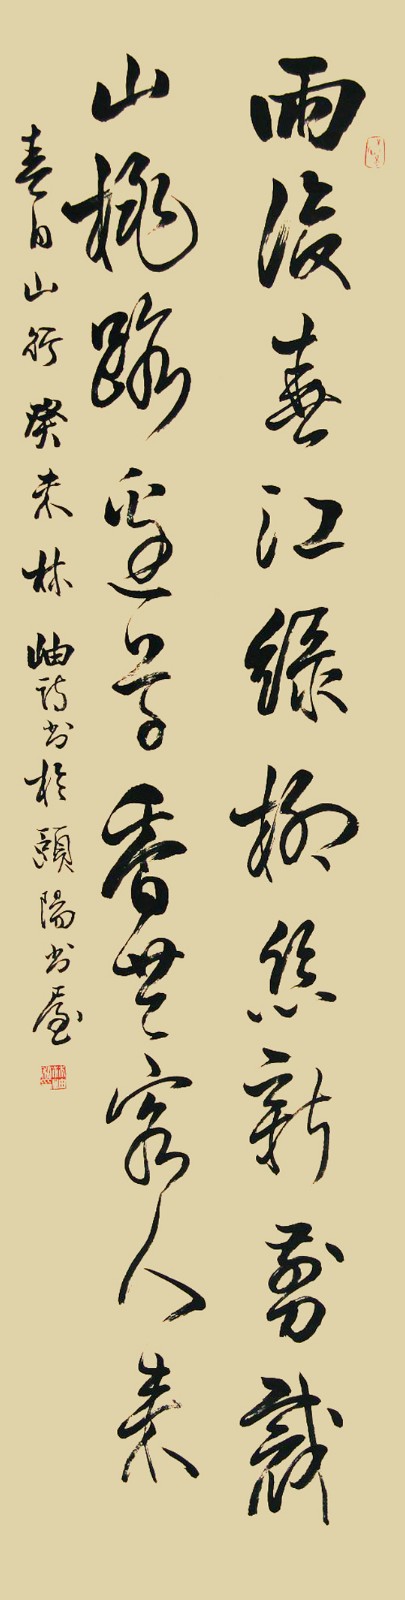 雨後春江綠柳絲新剪裁
山桃路邊香客人來
春日山行 癸未林岫詩書於頤陽書屋